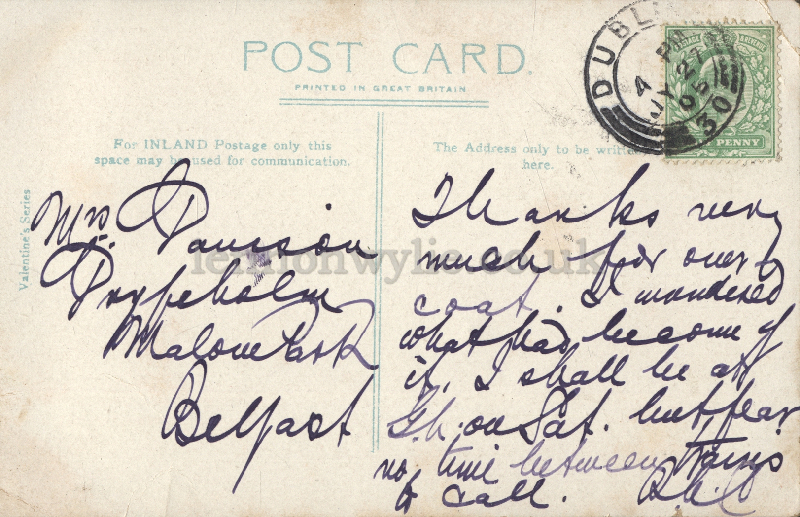 POST CARD.
PRINTED IN GREAT BRITAIN
DUBLIN
4 PM
JY 27
05
30
POSTAGE & REVENUE
PENNY
For INLAND Postage only this
space may be used for communication.
The Address only to be written
here.
Valentine's Series
Mrs
Malone Park
Belfast
Thanks very
much for over
coat. I wondered
what had become of
it. I shall be at
G.h. on Sat. but fear
no time between trains
to call.
lennonwylie.co.uk